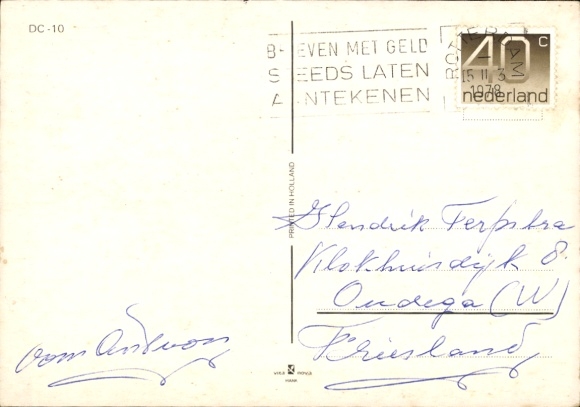 DC-10
B- EVEN MET GELD
S EEDS LATEN
A NTEKENEN
ROTTERDAM
15 II 3
1978
40 c
nederland
PRINTED IN HOLLAND
Hendrik Terpstra
Klokhuisdijk 8
Oudega (W)
Friesland
oom